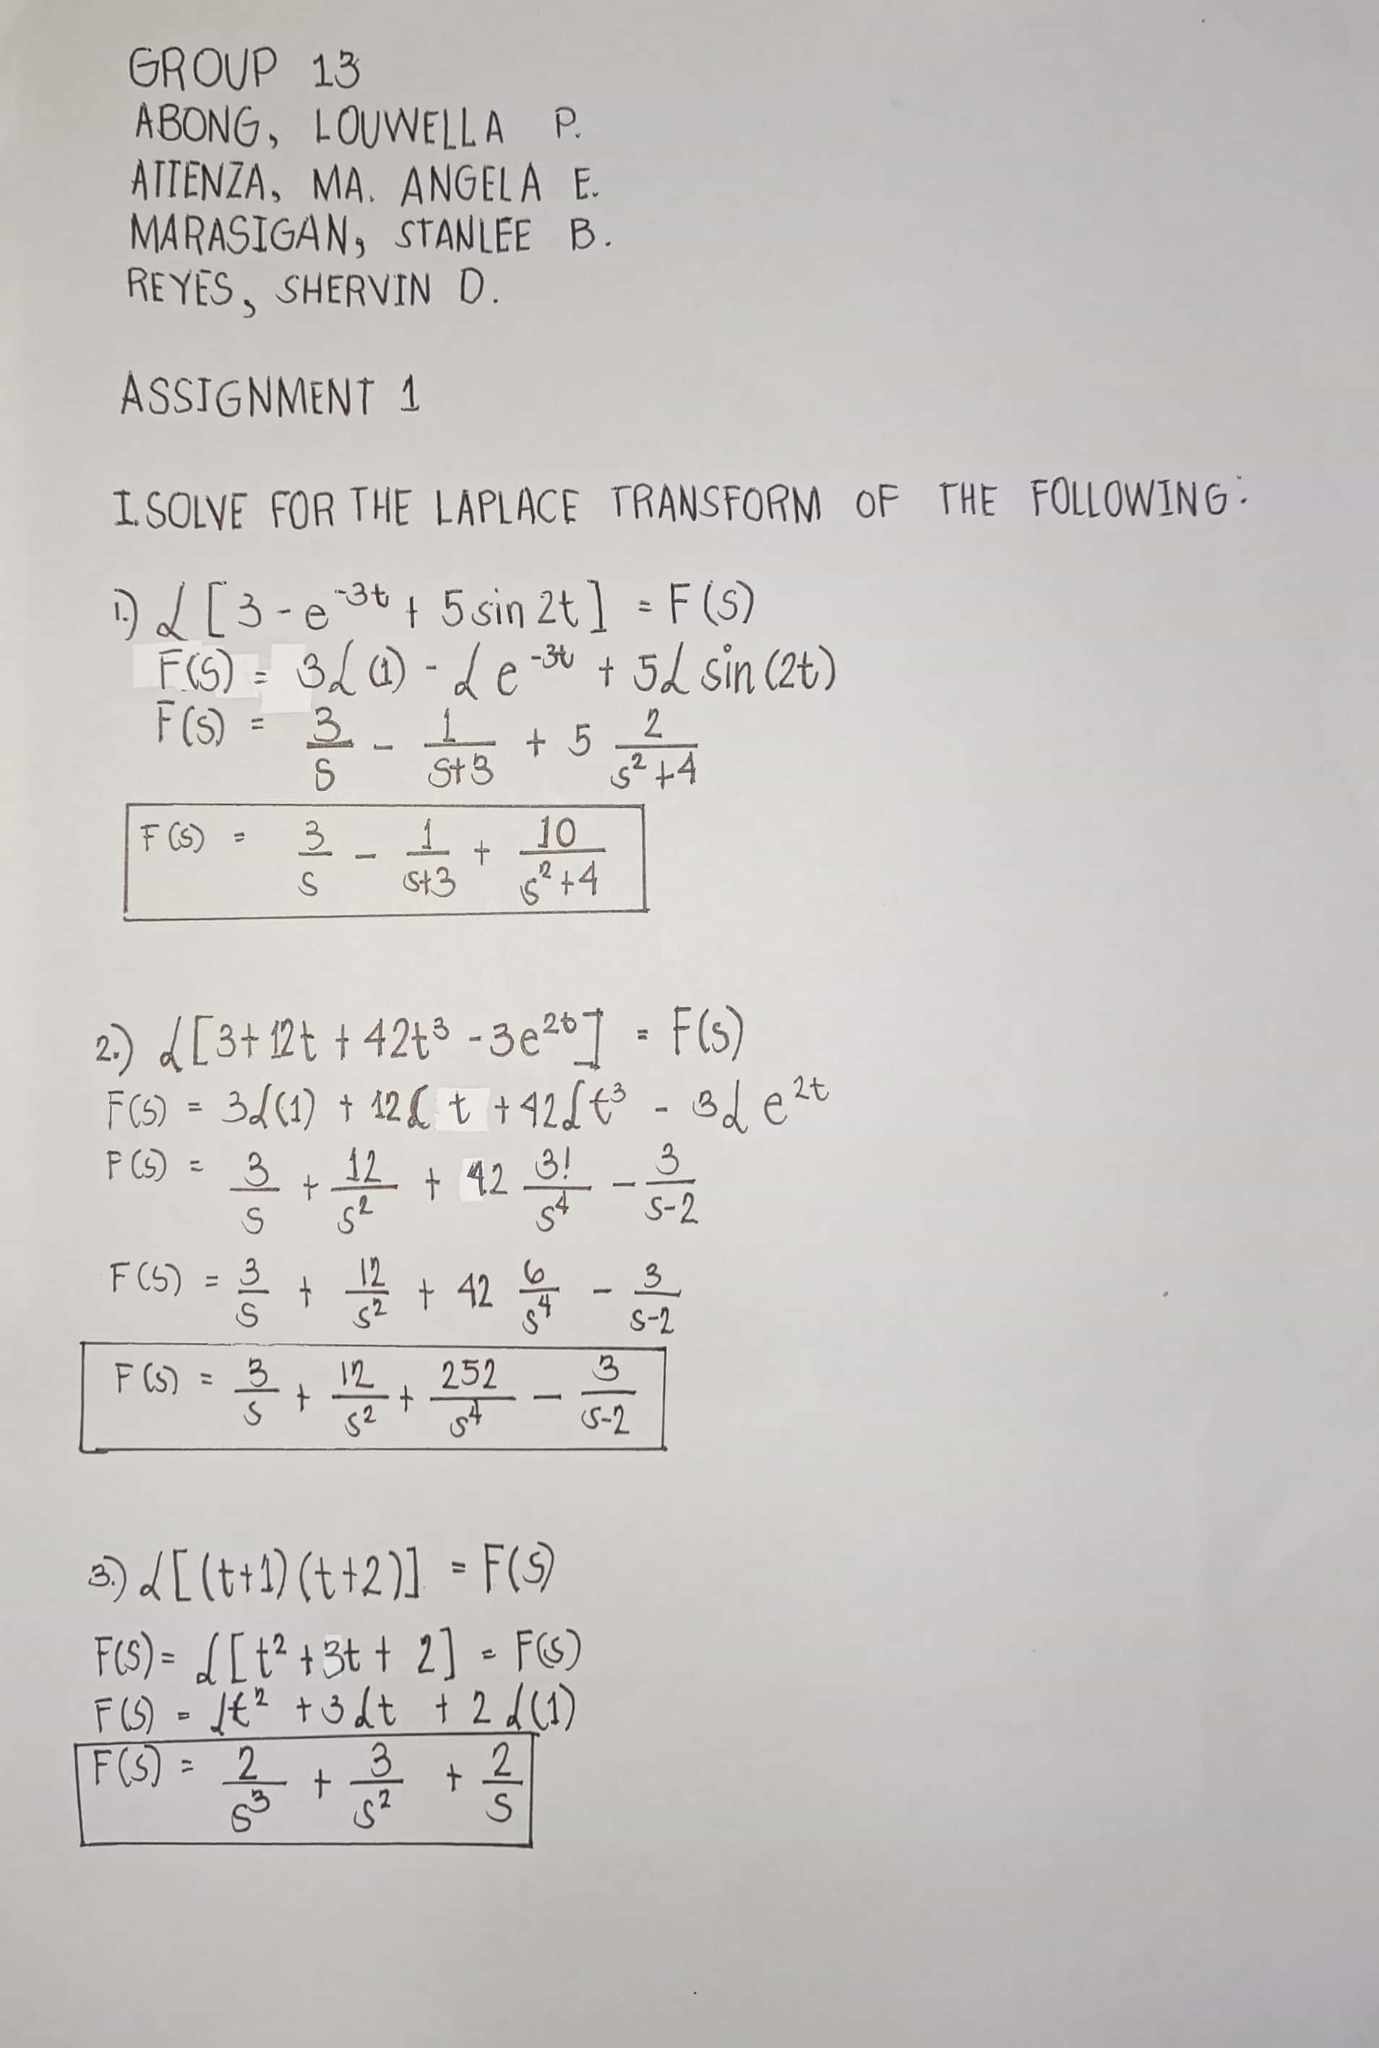 GROUP 13
ABONG, LOUWELLA P.
ATIENZA, MA. ANGELA E.
MARASIGAN, STANLEE B.
REYES, SHERVIN D.
ASSIGNMENT 1
I. SOLVE FOR THE LAPLACE TRANSFORM OF THE FOLLOWING:
1.) ℒ[3-e^-3t + 5 sin 2t] = F(S)
F(S) = 3ℒ(1) - ℒe^-3t + 5ℒ sin(2t)
F(S) = 3/S - 1/S+3 + 5 2/s²+4
F(S) = 3/S - 1/S+3 + 10/s²+4
2.) ℒ[3+12t + 42t³ - 3e^2t] = F(S)
F(S) = 3ℒ(1) + 12ℒ t + 42ℒt³ - 3ℒe^2t
F(S) = 3/S + 12/s² + 42 3!/s⁴ - 3/S-2
F(S) = 3/S + 12/s² + 42 6/s⁴ - 3/S-2
F(S) = 3/S + 12/s² + 252/s⁴ - 3/S-2
3.) ℒ[(t+1)(t+2)] = F(S)
F(S) = ℒ[t² + 3t + 2] = F(S)
F(S) = ℒt² + 3ℒt + 2ℒ(1)
F(S) = 2/s³ + 3/s² + 2/S